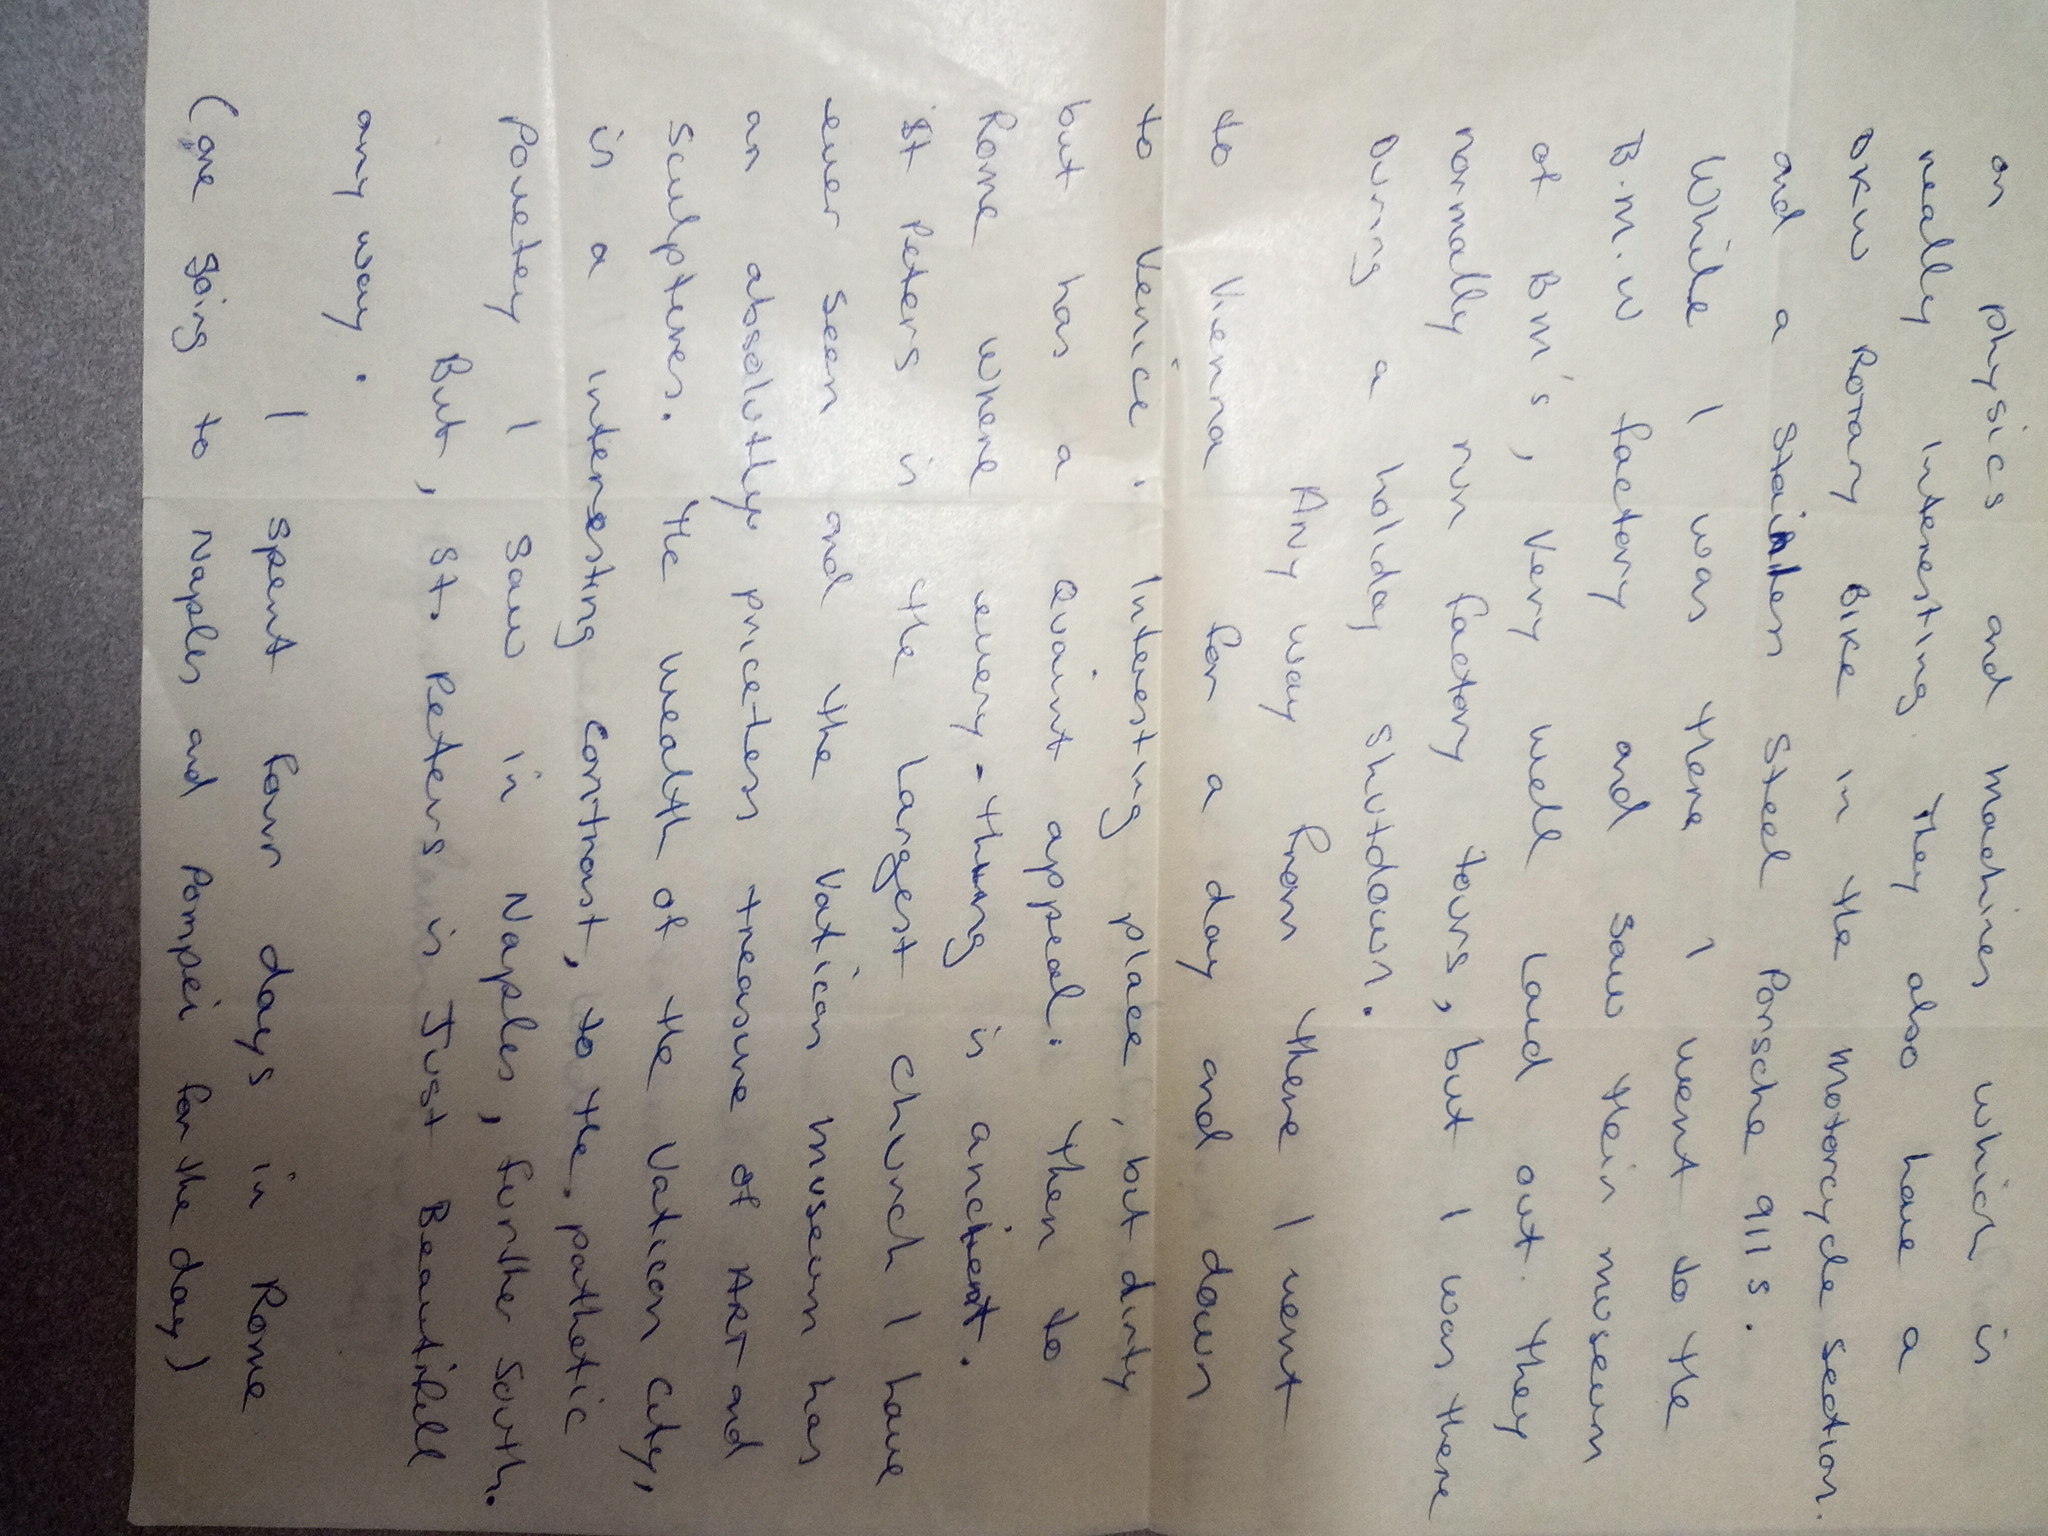 on physics and machines which is
really Interesting. They also have a
DKW Rotary Bike in the motorcycle section.
and a Stainles Steel Porsche 911 s.
While I was there I went to the
B.M.W factory and saw their museum
at BM's, Very well Laid out. They
normally run factory tours, but I was there
during a holiday shutdown.
Any way from there I went
to Vienna for a day and down
to Venice. Interesting place, but dirty
but has a Quaint appeal. Then to
Rome where every-thing is ancient.
St Peters is the Largest Church I have
ever seen and the Vatican museum has
an absolutly priceless treasure of ART and
Sculptures. The wealth of the Vatican City,
is a interesting contrast, to the pathetic
Povetey I saw in Naples, further south.
But, St. Peters is Just Beautifull
any way.
I spent four days in Rome
(one going to Naples and Pompei for the day)